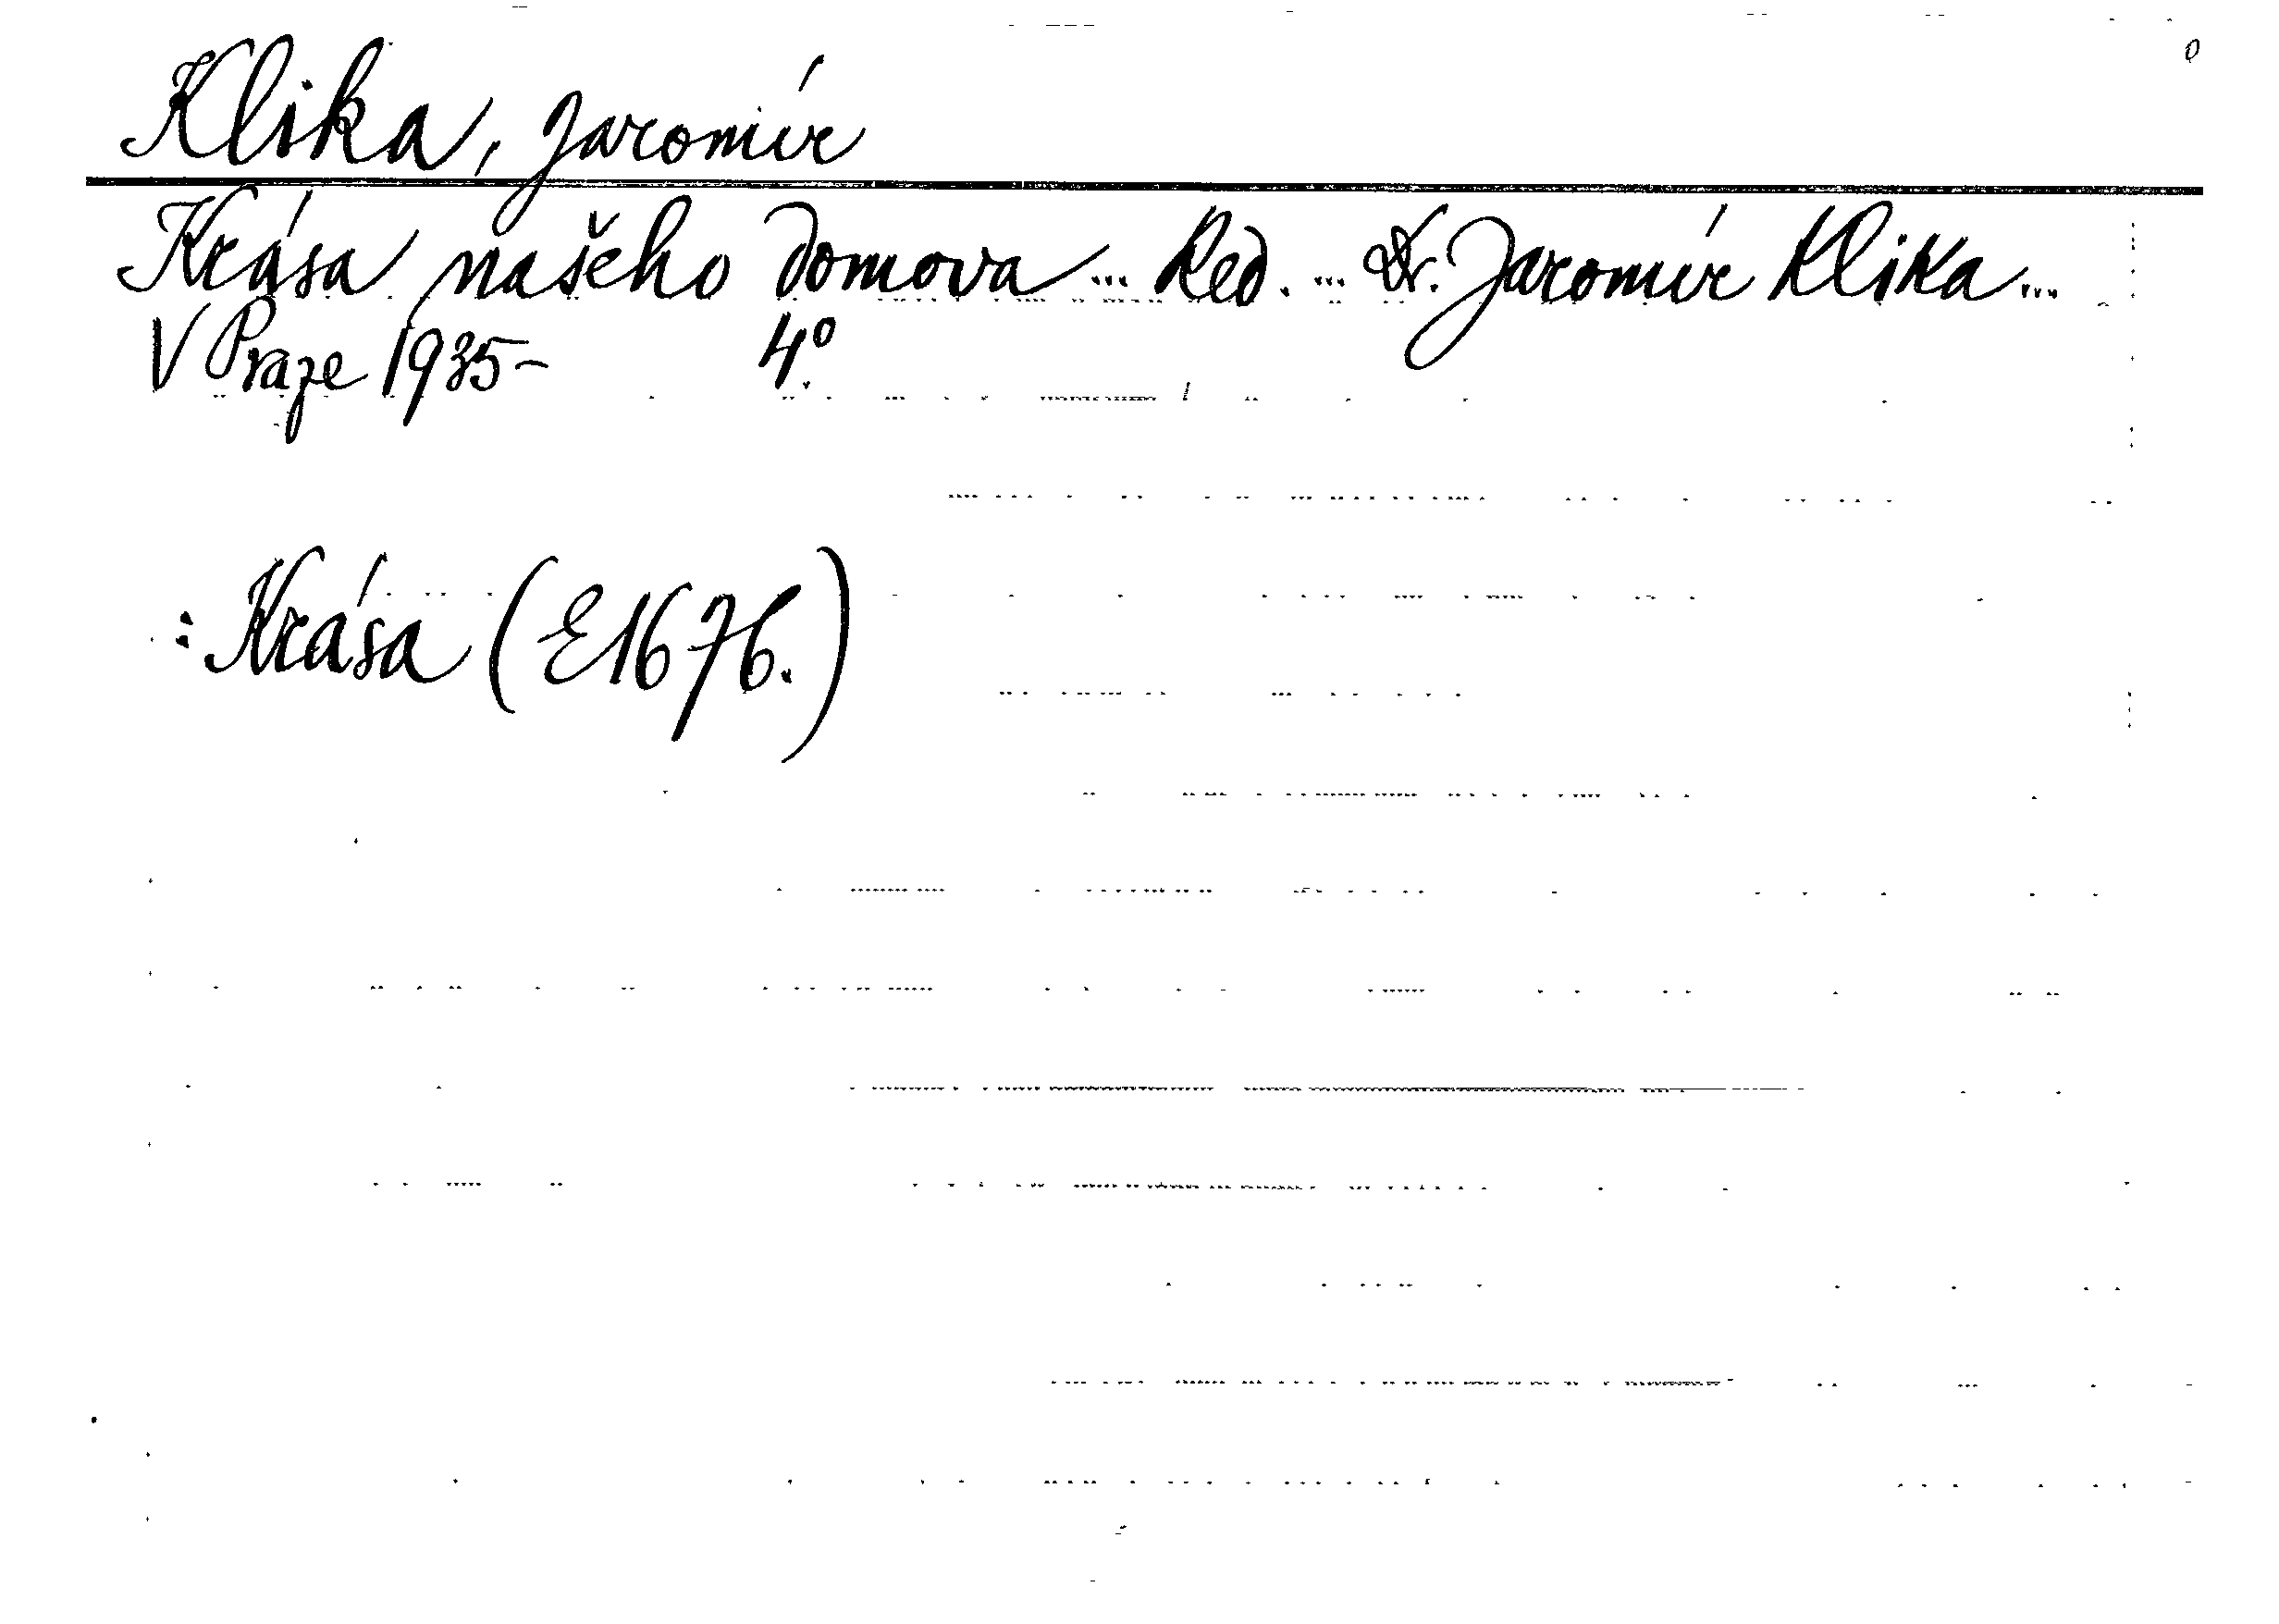 Klika, Jaromír
Krása našeho domova... Red. ... Dr. Jaromír Klika...
V Praze 1935- 4º.
: Krása (E1676.)